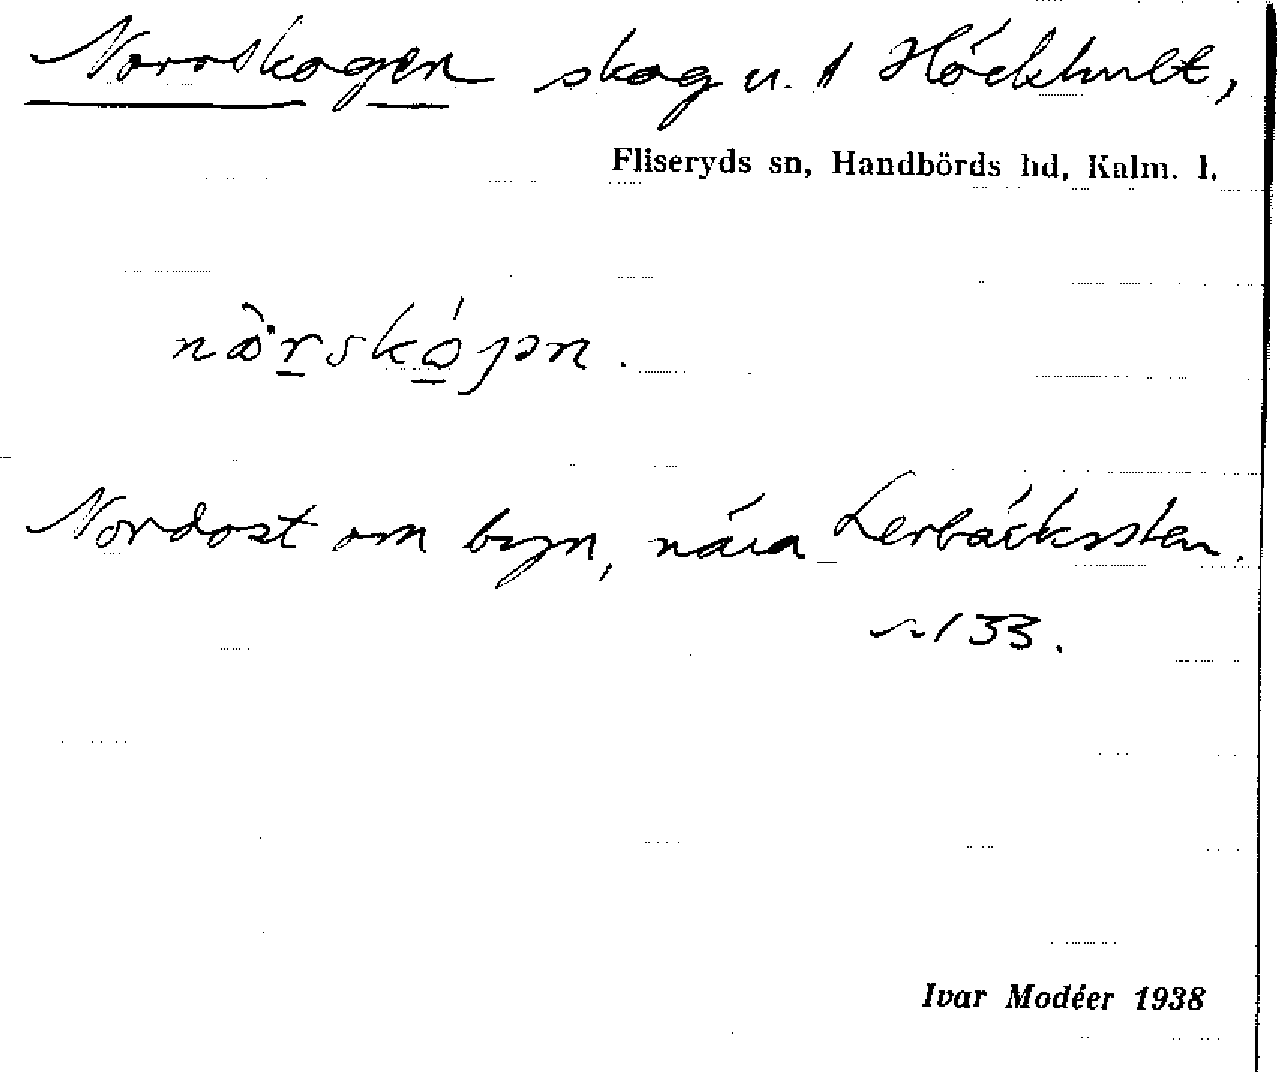 Norrskogen skog u. 1 Höckhult,
Fliseryds sn, Handbörds hd, Kalm. l.
Nordost om byn, nära Lerbäckssten.
n 133.
Ivar Modéer 1938